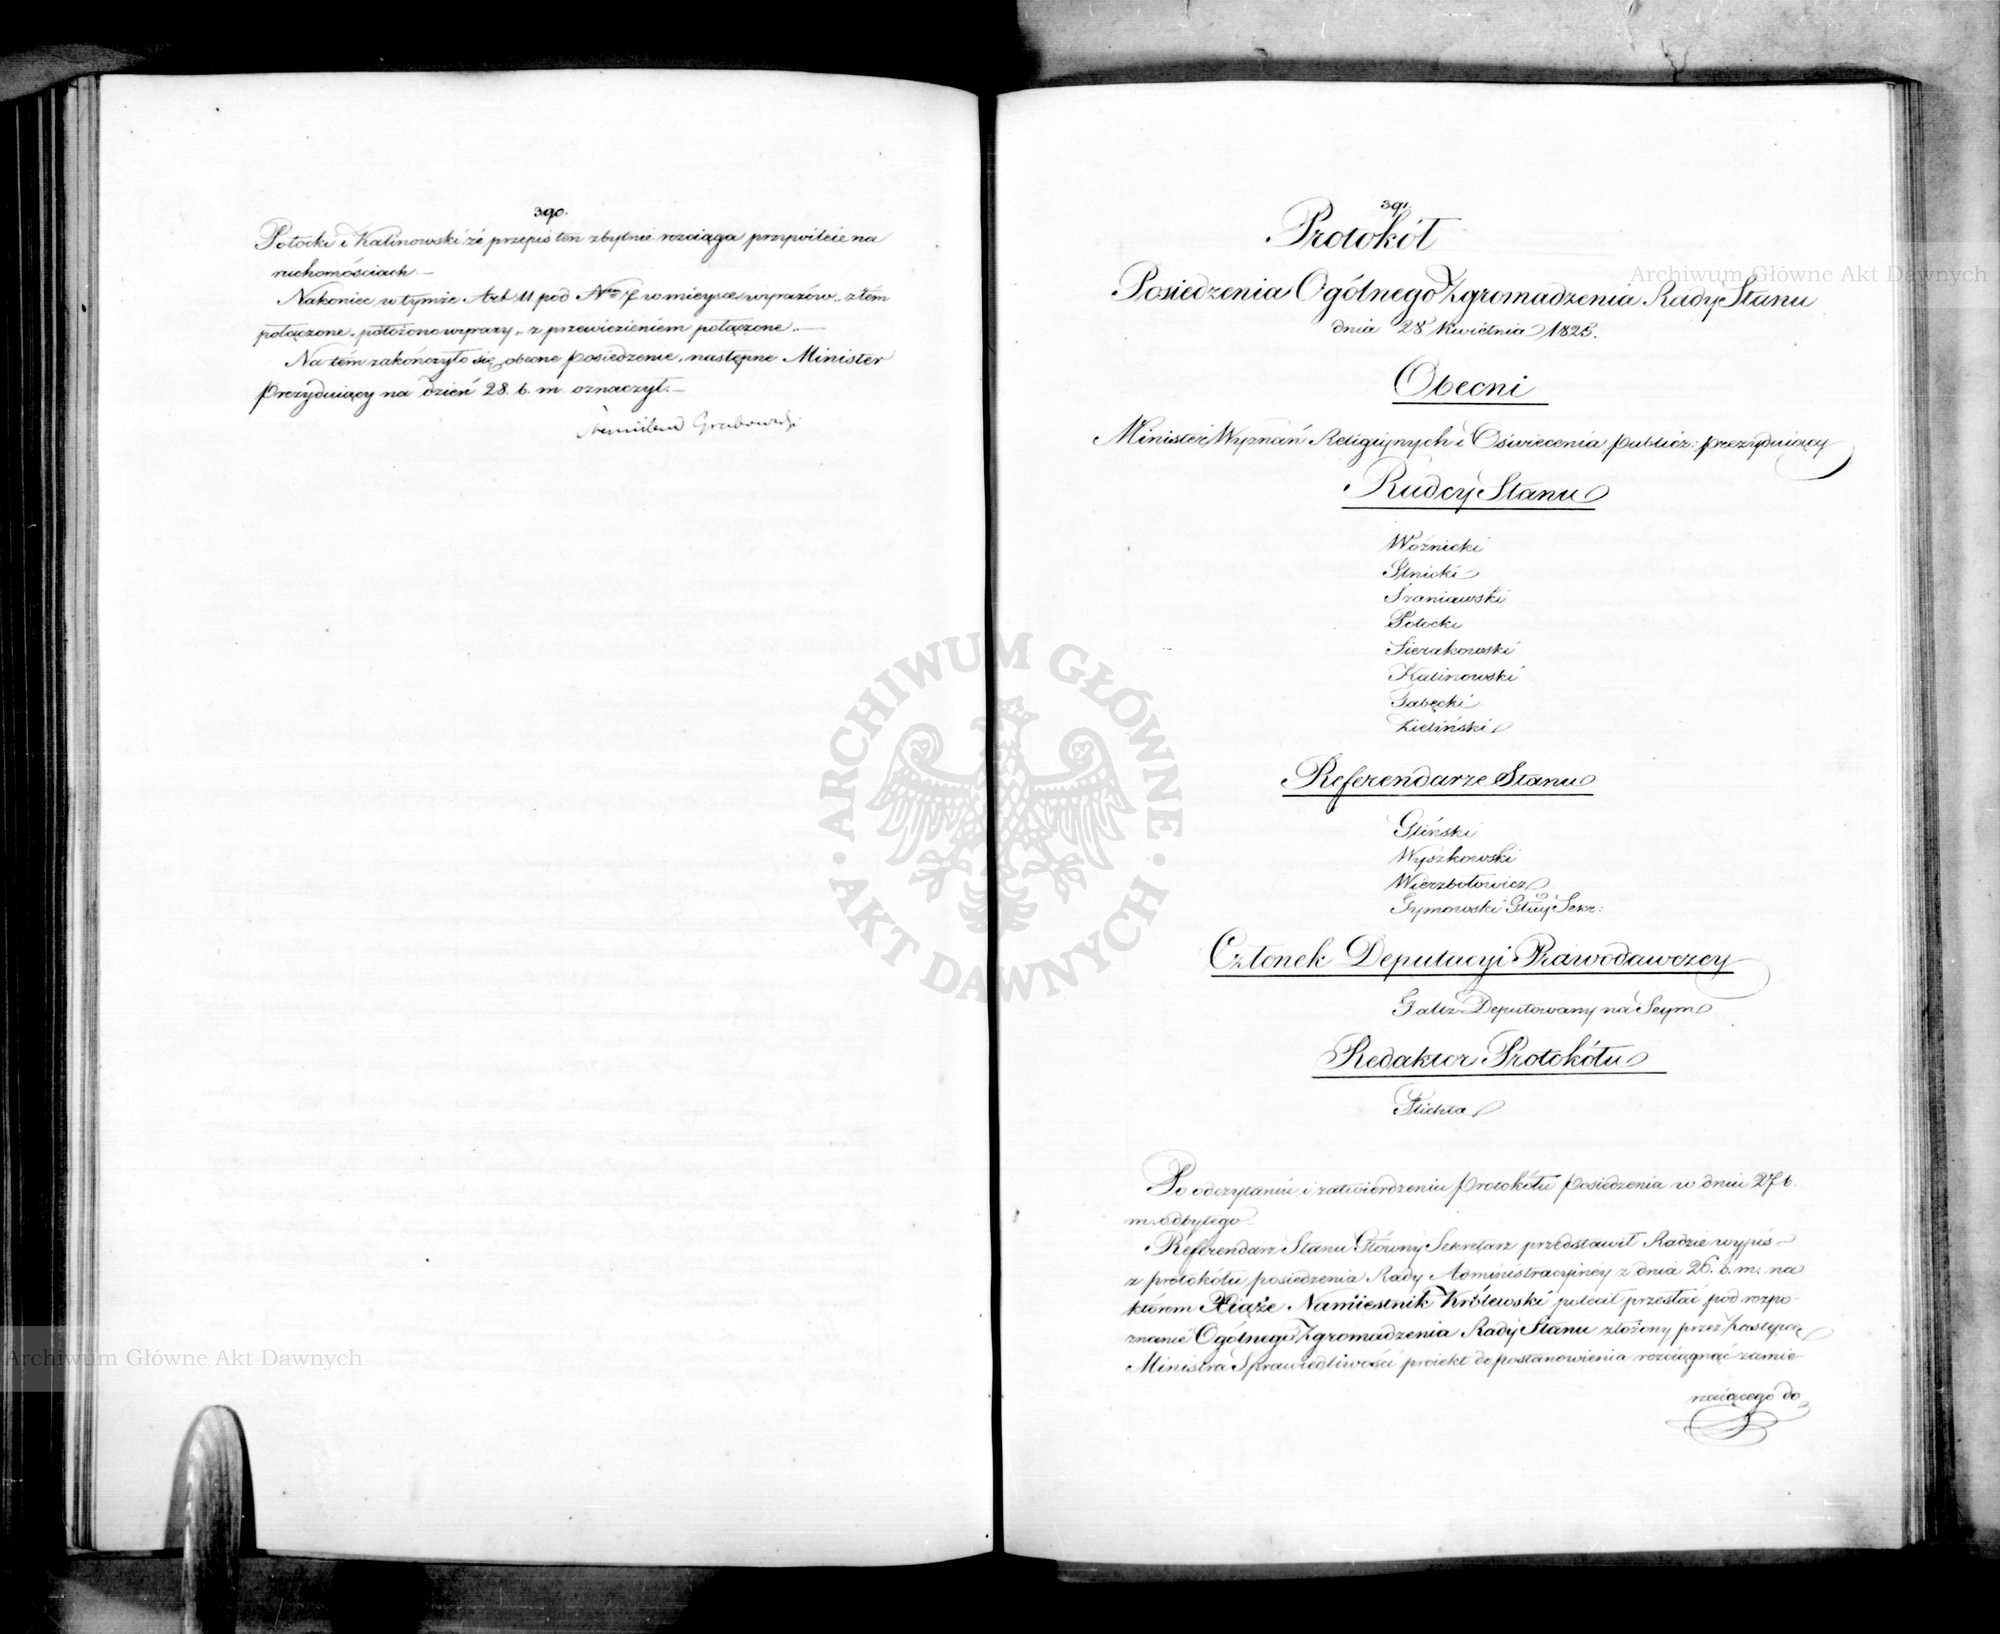 390.
Potocki i Kalinowski że przepis ten zbytnie rozciąga przywileie na
ruchomościach. —
Nakoniec w tymże Art 11 pod Nro 7 w mieysce wyrazów „ z tem
połączone „ położono wyrazy „ z przewiezieniem połączone „. —
Na tém zakończyło się obecne posiedzenie, następne Minister
Prezyduiący na dzień 28. b. m. oznaczył. —
Stanisław Grabowski
391.
Protokół
Posiedzenia Ogólnego Zgromadzenia Rady Stanu
dnia 28 Kwietnia 1825.
Obecni
Minister Wyznań Religiynych i Oświecenia publicz: prezyduiący
Radcy Stanu
Woźnicki
Szaniawski
Potocki
Sierakowski
Kalinowski
Tabęcki
Zieliński
Referendarze Stanu
Gliński
Wyszkowski
Wierzbołowicz
Tymowski Głny Sekr:
Członek Deputacyi Prawodawczey
Faltz Deputowany na Seym
Redaktor Protokółu
Plichta
Po odczytaniu i zatwierdzeniu protokółu posiedzenia w dniu 27 b.
m. odbytego
Referendarz Stanu Główny Sekretarz przedstawił Radzie wypis
z protokółu posiedzenia Rady Administracyiney z dnia 26. b. m. na
którem Xiąże Namiestnik Królewski polecił przesłać pod rozpo-
znanie Ogólnego Zgromadzenia Rady Stanu złożony przez Zastępcę
Ministra Sprawiedliwości proiekt do postanowienia rozciągnąć zamie-
rzaiącego do
Archiwum Główne Akt Dawnych
Archiwum Główne Akt Dawnych
ARCHIWUM GŁÓWNE · AKT DAWNYCH ·